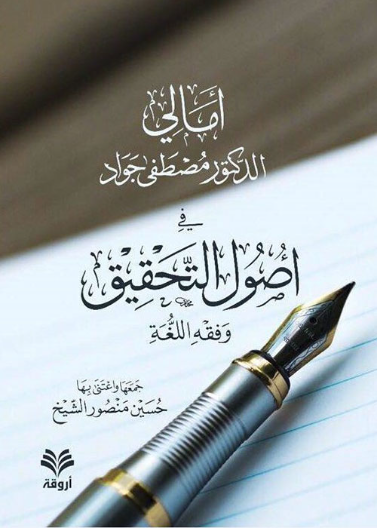 أَمَالِي
الدكتور مُصْطَفى جَوَاد
فِي
أُصُول التَّحْقِيق
وَفِقْهِ اللُّغَةِ
جَمَعَهَا وَاعْتَنَى بِهَا
حُسَيْن مَنْصُور الشَّيْخ
أروقة